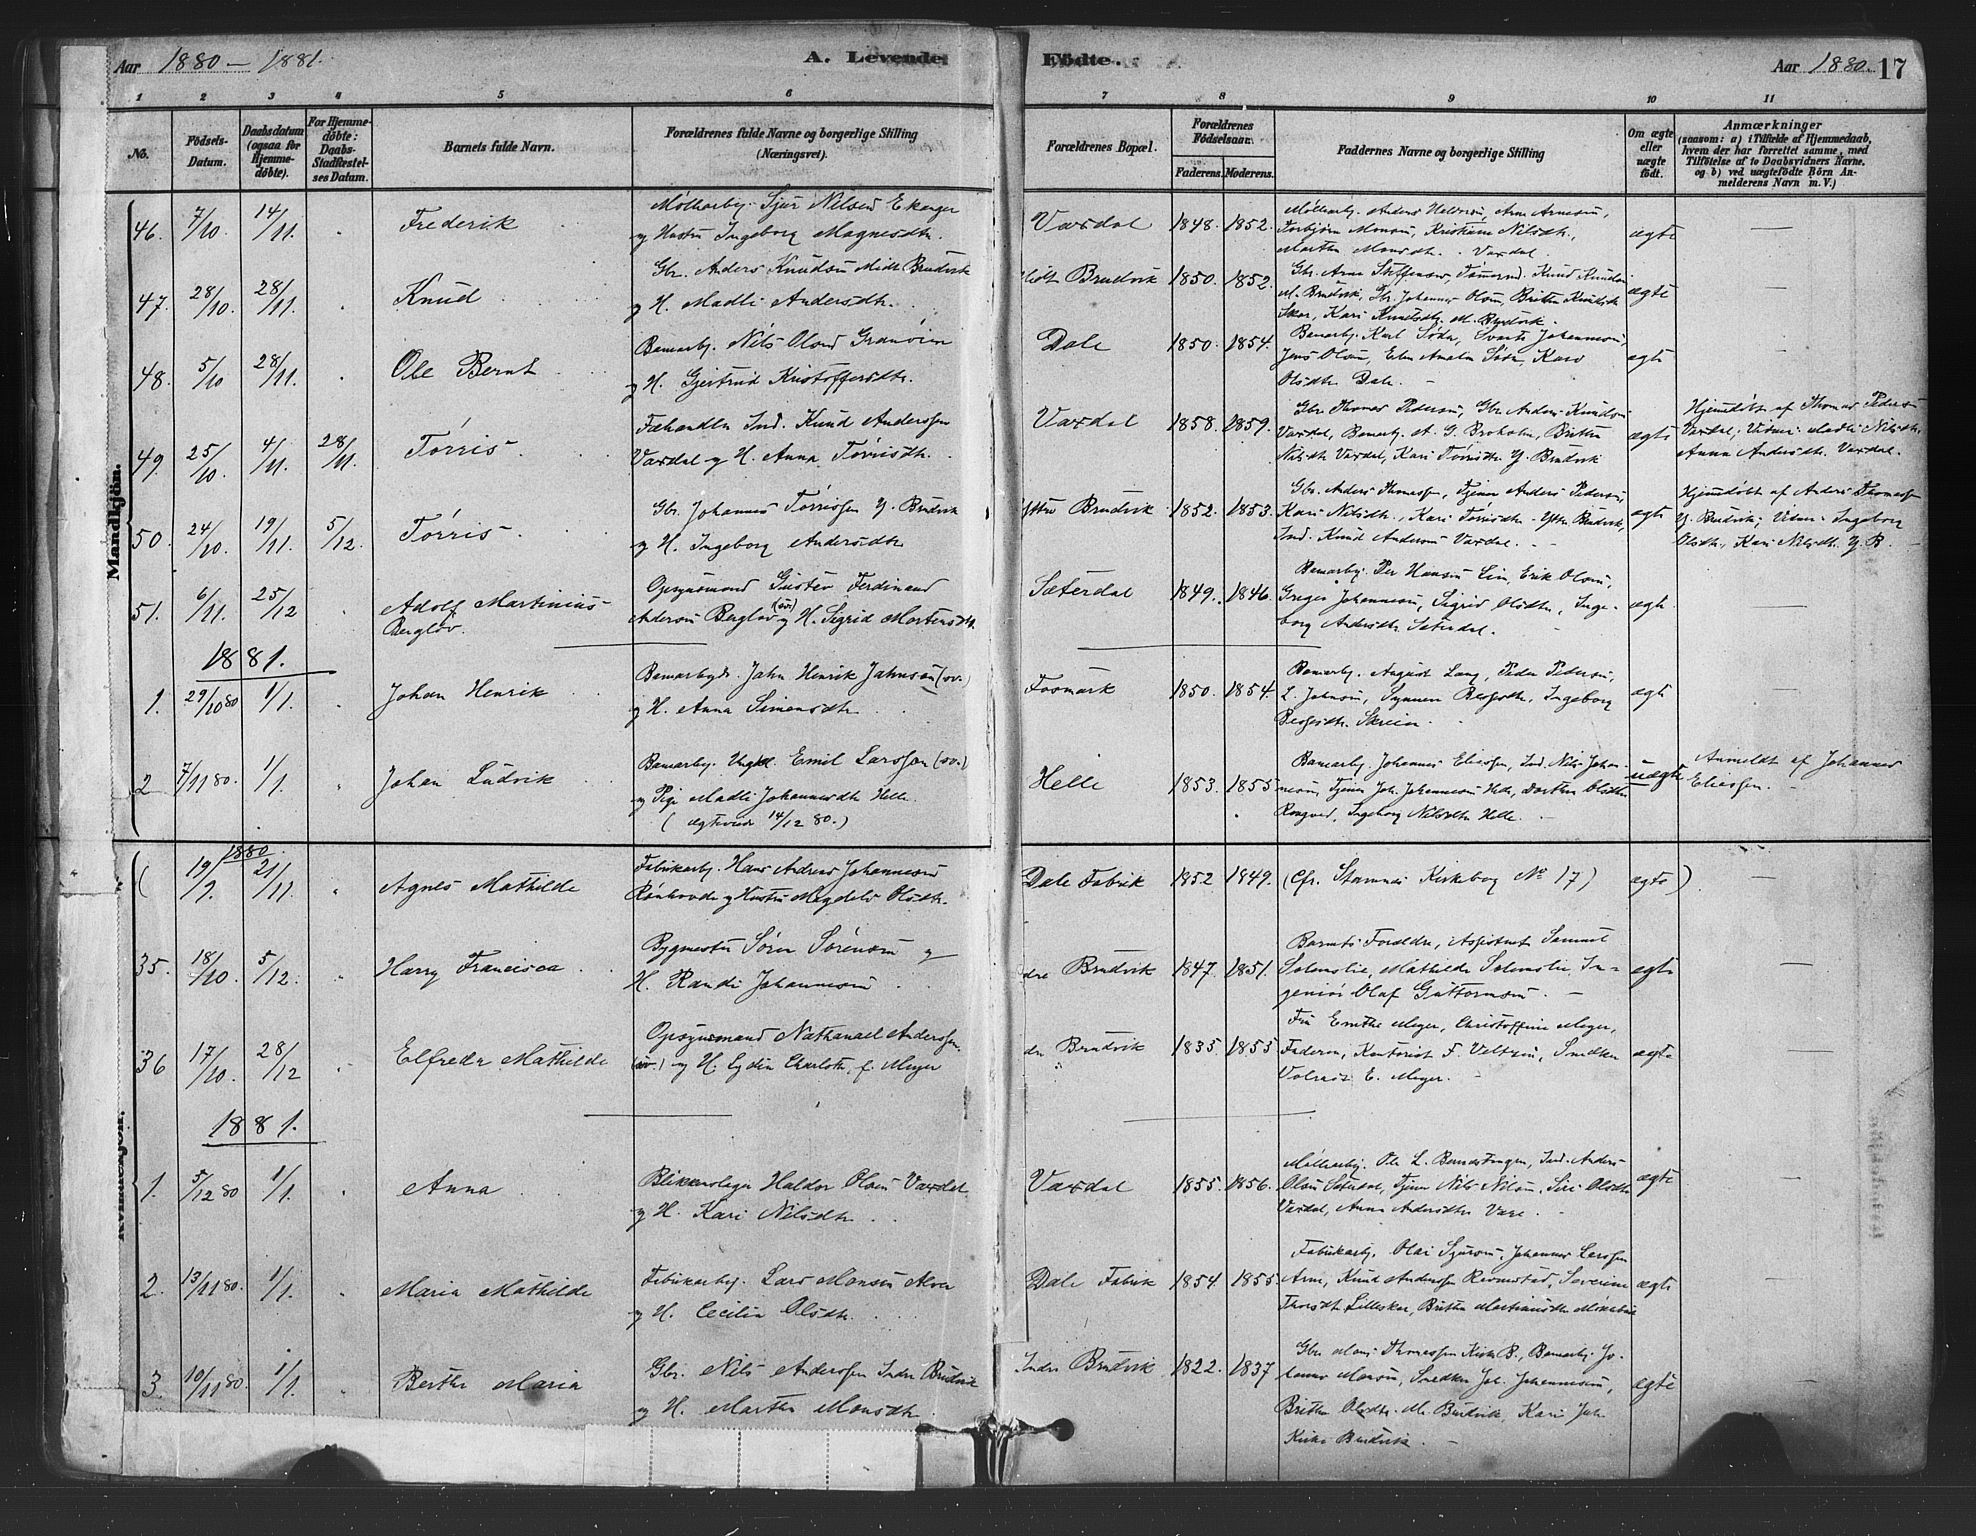 Aar 1880 – 1881.
A. Levende
Födte.
Aar 1880. 17
1 2 3 4 5 6 7 8 9 10 11
No.
Födsels-
Datum.
Daabsdatum
(ogsaa for
Hjemme-
döbte).
For Hjemme-
döbte:
Daabs-
Stadfæstel-
ses Datum.
Barnets fulde Navn.
Forældrenes fulde Navne og borgerlige Stilling
(Næringsvei).
Forældrenes Bopæl.
Forældrenes
Födselsaar.
Faderens. Moderens.
Faddernes Navne og borgerlige Stilling
Om ægte
eller
uægte
födt.
Anmærkninger
(saasom: a) i Tilfælde af Hjemmedaab,
hvem der har forrettet samme, med
Tilföielse af to Daabsvidners Navne.
og b) ved uægtefödte Börn An-
melderens Navn m. V.)
Mandkjön.
46. 7/10. 14/11. " Frederik
Mølllarb. Sjur Nilsen Ekanger
og Hustru Ingeborg Magnesdtr.
Vaxdal 1848. 1852.
Torbjörn Monsen, Kristiane Nilsdtr.,
Marthe Monsdtr. Vaxdal.
ægte
47. 28/10. 28/11. " Knud
Gbr. Anders Knudsen Midt Brudvik
og H. Madli Andersdtr.
Midt Brudvik 1850. 1852.
Gbr. Arne Steffensen, Knud Knudsen
M. Brudvik, Gbr. Johannes Olsen, Britha Knudsdtr.
Skar, Kari Knudsdtr. M. Brudvik.
ægte
48. 5/10 28/11. " Ole Bernt
Bamarby. Nils Olsen
og H. Gjertrud Kristoffersdtr.
Dale 1850. 1854.
Bamarby. Karl Johannesen,
Jens Olsen,
Olsdtr. Dale.
ægte
49. 25/10 4/11. 28/11. Tørris
Fæhandler Ind. Knud Anderssen
Vaxdal og H. Anna Tørrisdtr.
Vaxdal 1858. 1859.
Gbr. Thomas Pedersen, Gbr. Anders Knudsen
Vaxdal, Britha
Nilsdtr Vaxdal, Kari Tørrisdtr. Y. Brudvik
ægte
Hjemdöbt af Thomas Pedersen
Vaxdal; Vidner: Madli Nilsdtr.
Anna Andersdtr. Vaxdal.
50. 24/10. 19/11. 5/12. Tørris
Gbr. Johannes Tørrissen Y. Brudvik
og H. Ingeborg Andersdtr.
Yttre Brudvik 1852. 1853.
Gbr. Anders Thomassen, Tjener Anders Pedersen,
Kari Nilsdtr., Kari Tørrisdtr. Yttre Brudvik,
Ind. Knud Andersen Vaxdal.
ægte
Hjemdöbt af Anders Thomassen
Y. Brudvik; Vidner: Ingeborg
Olsdtr., Kari Nilsdtr. Y. B.
51. 6/11. 25/12 " Adolf Martinius
Berglöv.
Opsynsmand Gustav Ferdinand
Andersen Berglöv (sv.) og H. Sigrid Mortensdtr.
Sæterdal 1849. 1846.
Bamarby. Per Hansen Lin, Erik Olsen,
Greger Johannesen, Sigrid Olsdtr., Inge-
borg Andersdtr. Sæterdal.
ægte
1881.
1. 29/10 80 1/1. " Johan Henrik
Bamarbyd. Jahn Henrik Jahnsen (sv.)
og H. Anna Simensdtr.
Fosmark 1850. 1854.
Bamarby. August Lang, Peder Pedersen,
L. Johnsen, Synneve Bergesdtr., Ingeborg
Bergesdtr. Skreien.
ægte
2 7/11 80. 1/1. " Johan Ludvik
Bamarby. Ungkl. Emil Larssen (sv.)
og Pige Madli Johannesdtr Helle
(ægteviede 14/12 80.)
Helle 1853. 1855
Bamarby. Johannes Eliassen, Ind. Nils Johan-
nesen, Tjener Joh. Johannesen Helle, Dorthea Olsdtr.
Ingeborg Nilsdtr. Helle.
uægte
Anmeldt af Johannes
Eliassen.
Kvindekjön.
1880.
( 19/9. 21/11. " Agnes Mathilde
Fabrikarby. Hans Andreas Johannesen
Rönhovde og Hustru Magdela Olsdtr.
Dale Fabrik 1852 1849.
(Cfr. Stamnes Kirkebog No 17)
ægte )
35. 18/10. 5/12. " Harry Francisca
Bygmester Sören Sörensen og
H. Randi Johannesen
Indre Brudvik 1847. 1851.
Barnets Forældre, Assistent Samuel
Solemslie, Mathilde Solemslie, In-
geniör Olaf Guttormsen.
ægte
36 17/10. 28/12 " Elfreda Mathilde
Opsynsmand Nathanael Anderssen
(sv.) og H. Lydia Charlotte, f. Meyer
Indre Brudvik 1835. 1855
Fru Emthe Meyer, Christoffine Meyer,
Faderen, Kontorist F. Veltzin, Snedker
E. Meyer.
ægte
1881.
1. 5/12 80 1/1. " Anna
Blikkenslager Haldor Olsen Vaxdal
og H. Kari Nilsdtr
Vaxdal 1855. 1856.
Möllearby. Ole L. Ind. Anders
Olsen Sæterdal, Tjener Nils Nilsen, Siri Olsdtr.
Vaxdal, Anna Andersdtr.
ægte
2. 13/11 80. 1/1. " Maria Mathilde
Fabrikarby. Lars Monsen Alver
og H. Cecilia Olsdtr.
Dale Fabrik 1854. 1855.
Fabrikarby. Olai Sjursen, Johannes Larssen
Arne, Knud Anderssen Severine
Thorsdtr. Lilleskar, Britha
ægte
3 10/11 80. 1/1. " Berthe Maria
Gbr. Nils Anderssen Indre Brudvik
og H. Martha Monsdtr
Indre Brudvik 1822. 1837
Gbr. Mons Thomassen Kirke B., Bamarby. Jo-
hannes Monsen, Snedker Joh. Johannesen,
Britha Olsdtr. M. Brudvik, Kari Joh.
Kirke Brudvik.
ægte